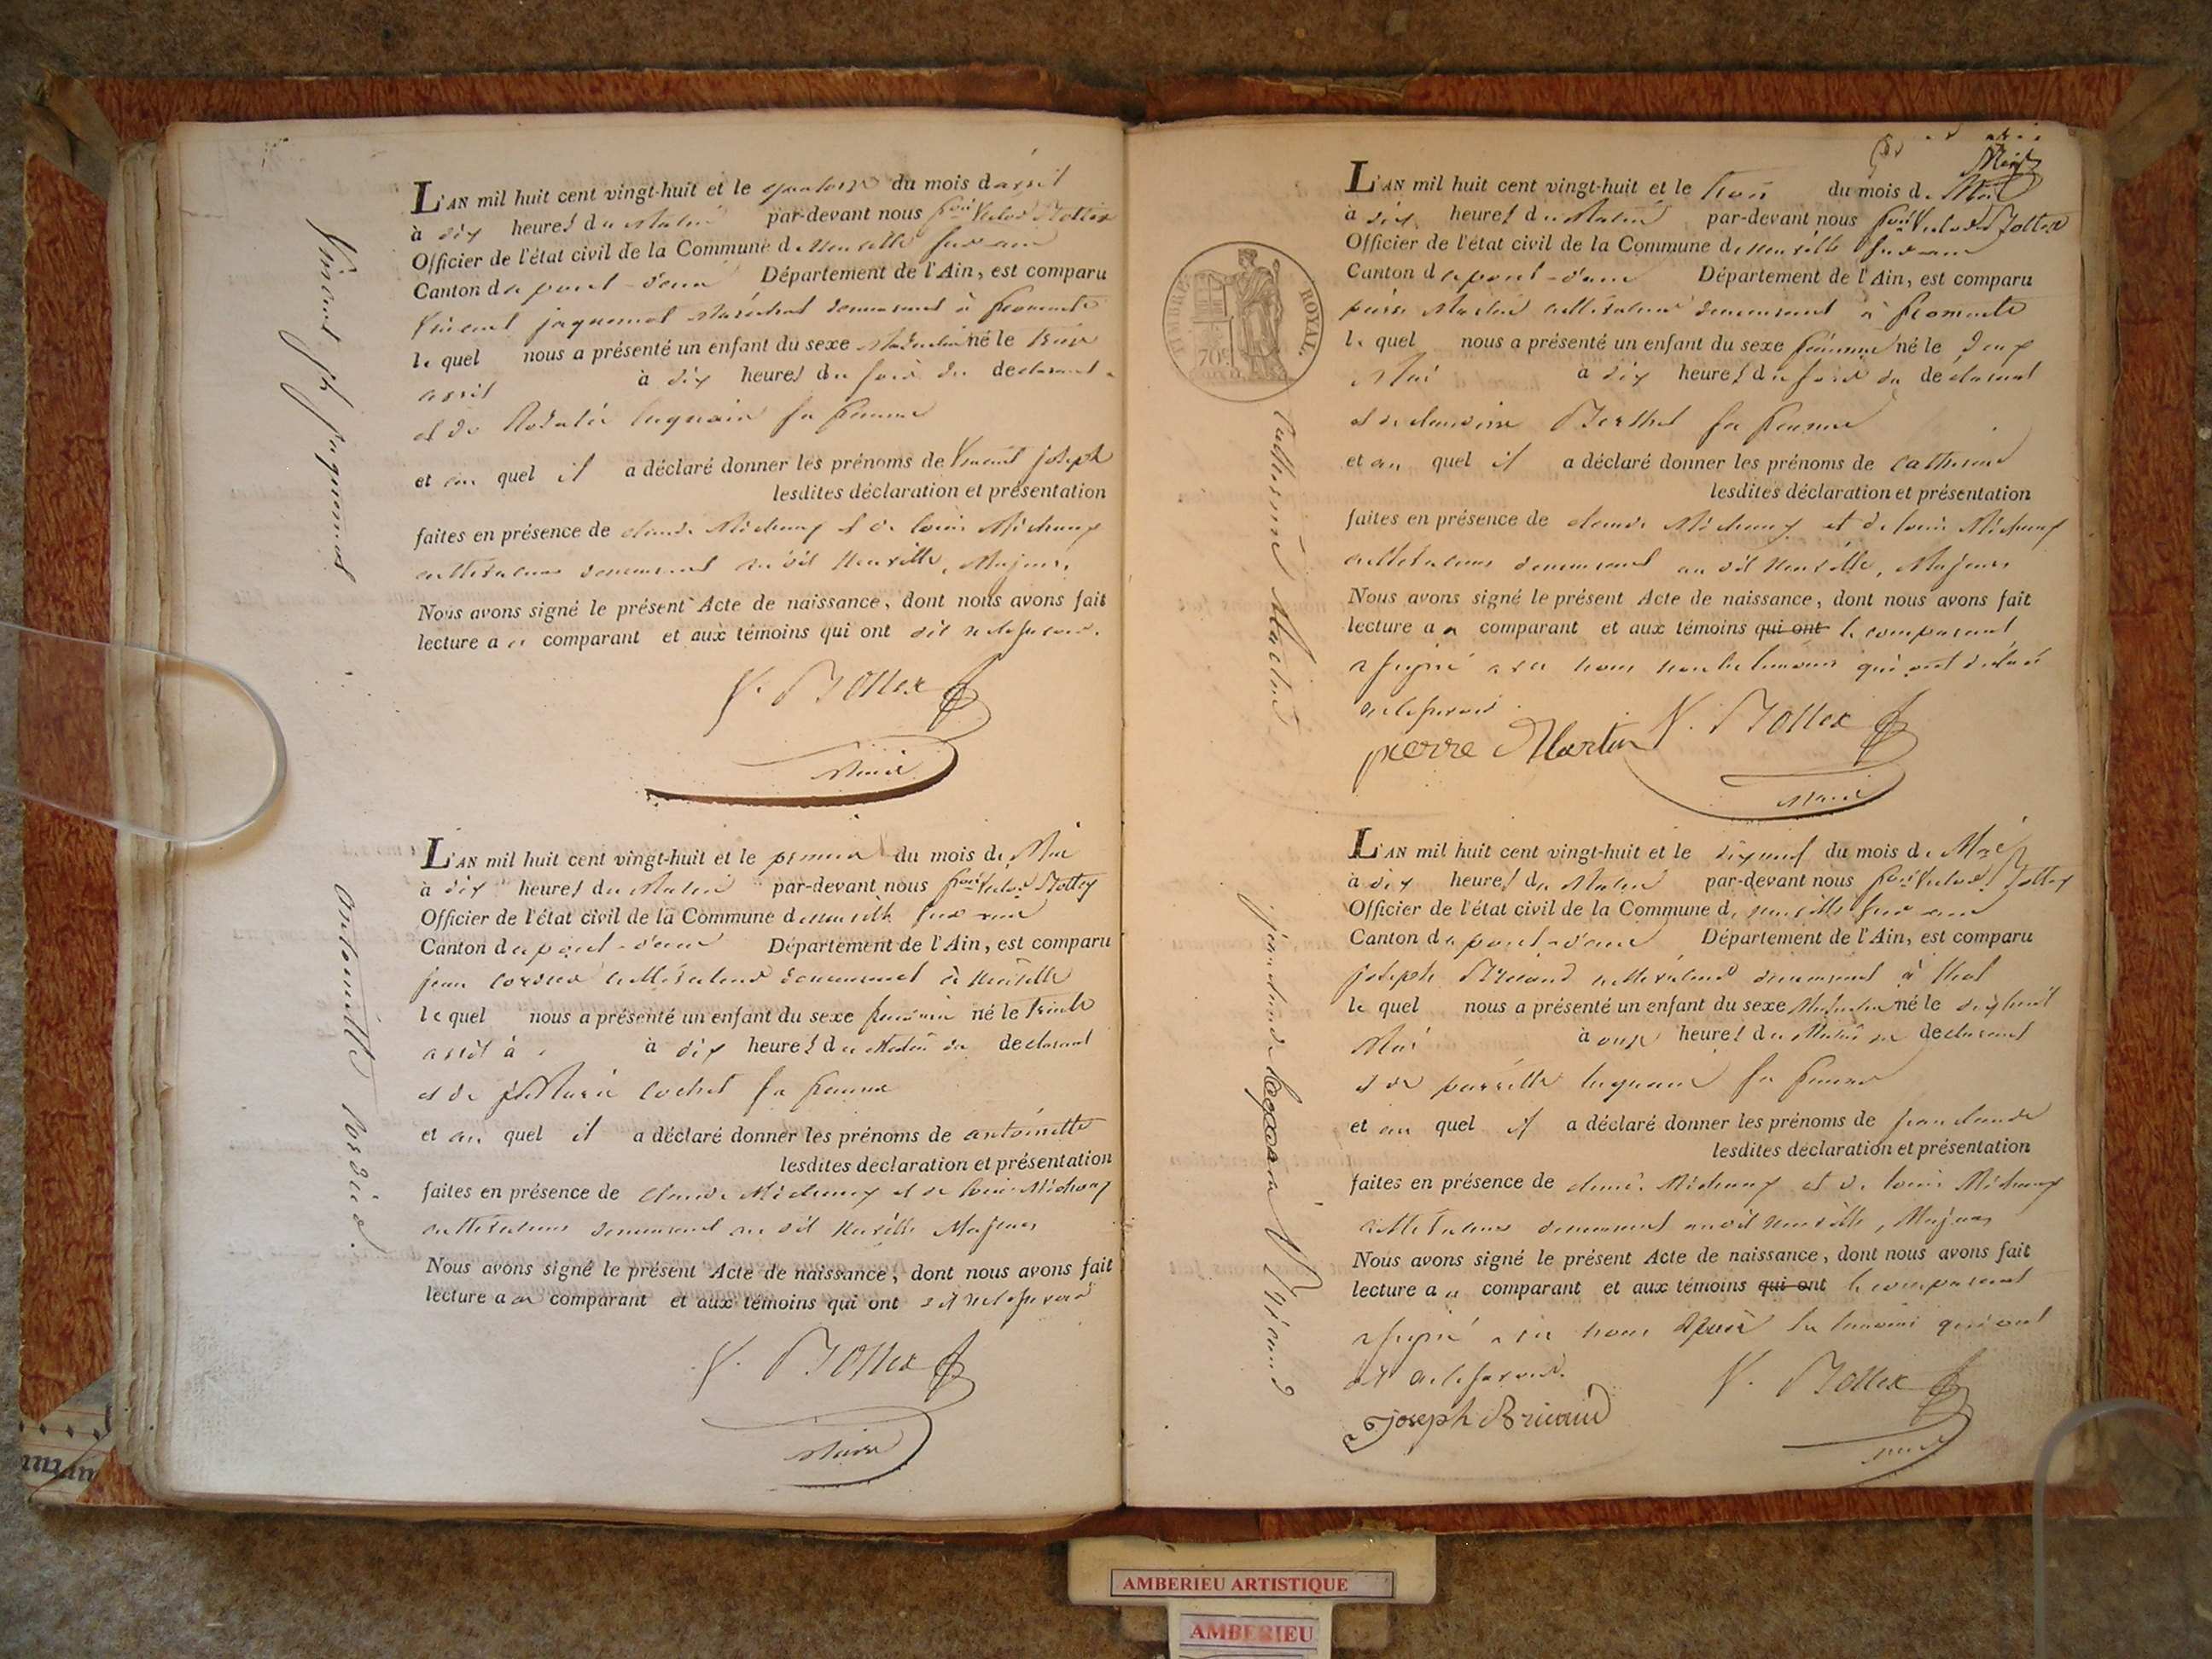 L'AN mil huit cent vingt-huit et le quatorze du mois d avril
à dix heures du Matin par-devant nous fçois Victor Bottex
Officier de l'état civil de la Commune de neuville sur ain
Canton de pont-d'ain Département de l'Ain, est comparu
Vincent jaquemot Maréchal demeurant à fromente
lequel nous a présenté un enfant du sexe Masculin né le treize
avril à dix heures du soir du declarant
et de sa femme
et au quel il a déclaré donner les prénoms de Vincent joseph
lesdites déclaration et présentation
faites en présence de claude Michaux et de louis Michaux
cultivateurs demeurant au dit Neuville, Majeurs.
Nous avons signé le présent Acte de naissance, dont nous avons fait
lecture au comparant et aux témoins qui ont dit ne le savoir.
V. Bottex
Maire
Vincent jh jaquemot
L'AN mil huit cent vingt-huit et le premier du mois de Mai
à dix heures du Matin par-devant nous fçois Victor Bottex
Officier de l'état civil de la Commune de neuville sur ain
Canton de pont-d'ain Département de l'Ain, est comparu
jean cordier cultivateur demeurant à Neuville
lequel nous a présenté un enfant du sexe feminin né le trente
avril à dix heures du Matin du declarant
et de Marie cochet sa femme
et au quel il a déclaré donner les prénoms de antoinette
lesdites declaration et présentation
faites en présence de claude Michaux et de louis Michaux
cultivateurs demeurant au dit Neuville Majeurs
Nous avons signé le présent Acte de naissance, dont nous avons fait
lecture au comparant et aux témoins qui ont dit ne le savoir
V. Bottex
Maire
antoinette Cordier.
TIMBRE ROYAL.
70c.
L'AN mil huit cent vingt-huit et le trois du mois de Mai
à dix heures du Matin par-devant nous fçois Victor Bottex
Officier de l'état civil de la Commune de neuville sur ain
Canton de pont-d'ain Département de l'Ain, est comparu
pierre Martin cultivateur demeurant à fromente
lequel nous a présenté un enfant du sexe féminin né le deux
Mai à dix heures du soir du declarant
et de Berthet sa femme
et au quel il a déclaré donner les prénoms de catherine
lesdites déclaration et présentation
faites en présence de claude Michaux et de louis Michaux
cultivateurs demeurant au dit Neuville, Majeurs
Nous avons signé le présent Acte de naissance, dont nous avons fait
lecture au comparant et aux témoins qui ont le comparant
a signé avec nous non les temoins qui ont déclaré
ne le savoir.
pierre Martin V. Bottex
Maire
Catherine Martin
L'AN mil huit cent vingt-huit et le dixneuf du mois de Mai
à dix heures du Matin par-devant nous fçois Victor Bottex
Officier de l'état civil de la Commune de neuville sur ain
Canton de pont-d'ain Département de l'Ain, est comparu
joseph Bricaud cultivateur demeurant à
lequel nous a présenté un enfant du sexe Masculin né le dixhuit
Mai à onze heures du Matin du declarant
et de sa femme
et au quel il a déclaré donner les prénoms de jean claude
lesdites déclaration et présentation
faites en présence de claude Michaux et de louis Michaux
cultivateurs demeurant audit neuville, Majeurs
Nous avons signé le présent Acte de naissance, dont nous avons fait
lecture au comparant et aux témoins qui ont le comparant
a signé avec nous les temoins qui ont
dit ne le savoir.
joseph Bricaud V. Bottex
maire
jean claude Bricaud
AMBERIEU ARTISTIQUE
AMBERIEU